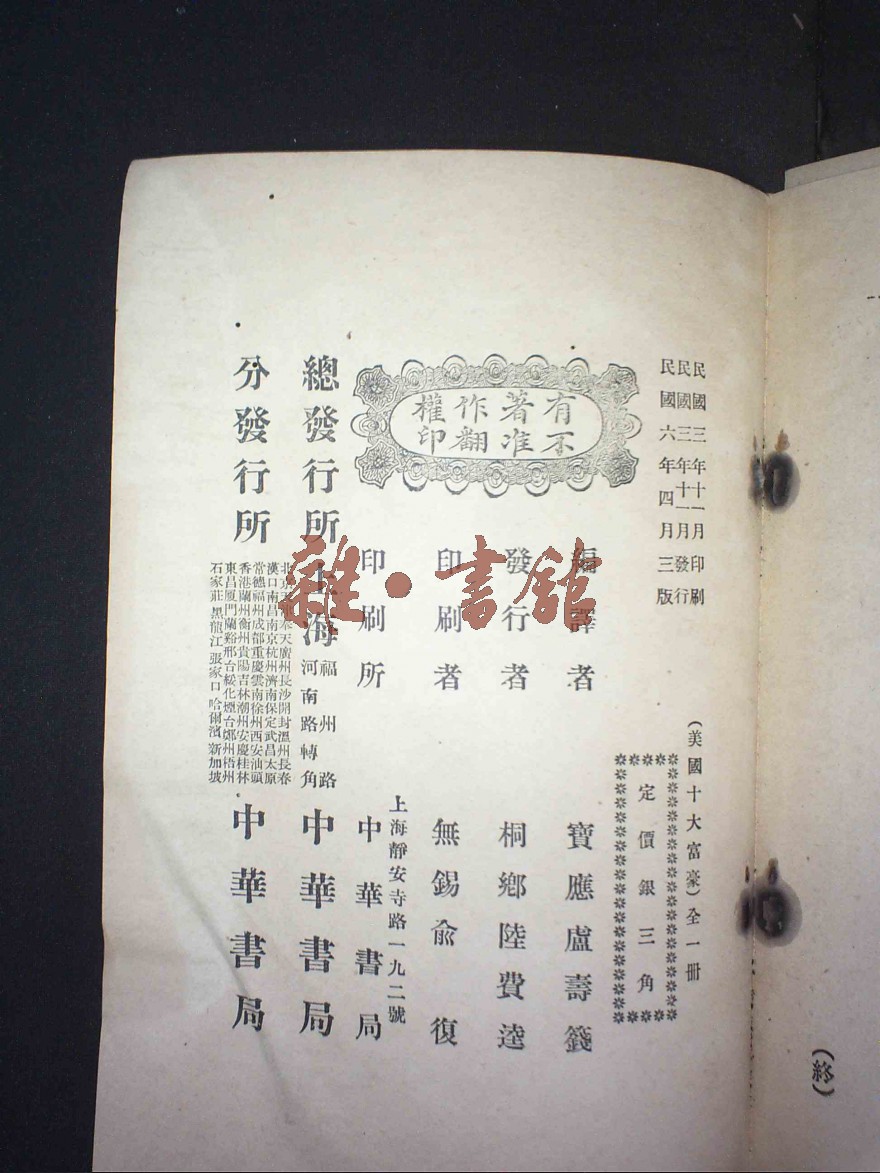 民國三年十一月印刷
民國三年十一月發行
民國六年四月三版
(美國十大富豪)全一冊
定價銀三角
有著作權
不准翻印
編譯者 寶應盧壽籛
發行者 桐鄉陸費逵
印刷者 無錫俞復
印刷所 上海靜安寺路一九二號 中華書局
總發行所 上海 福州路 河南路轉角 中華書局
分發行所 中華書局
北京天津奉天廣州長沙開封溫州長春
漢口南昌南京杭州濟南保定武昌太原
常德福州成都重慶雲南徐州西安汕頭
香港蘭州衡州貴陽吉林潮州安慶桂林
東昌厦門蘭谿邢台綏化煙台鄭州梧州
石家莊黑龍江張家口哈爾濱新加坡
(終)
雜·書館